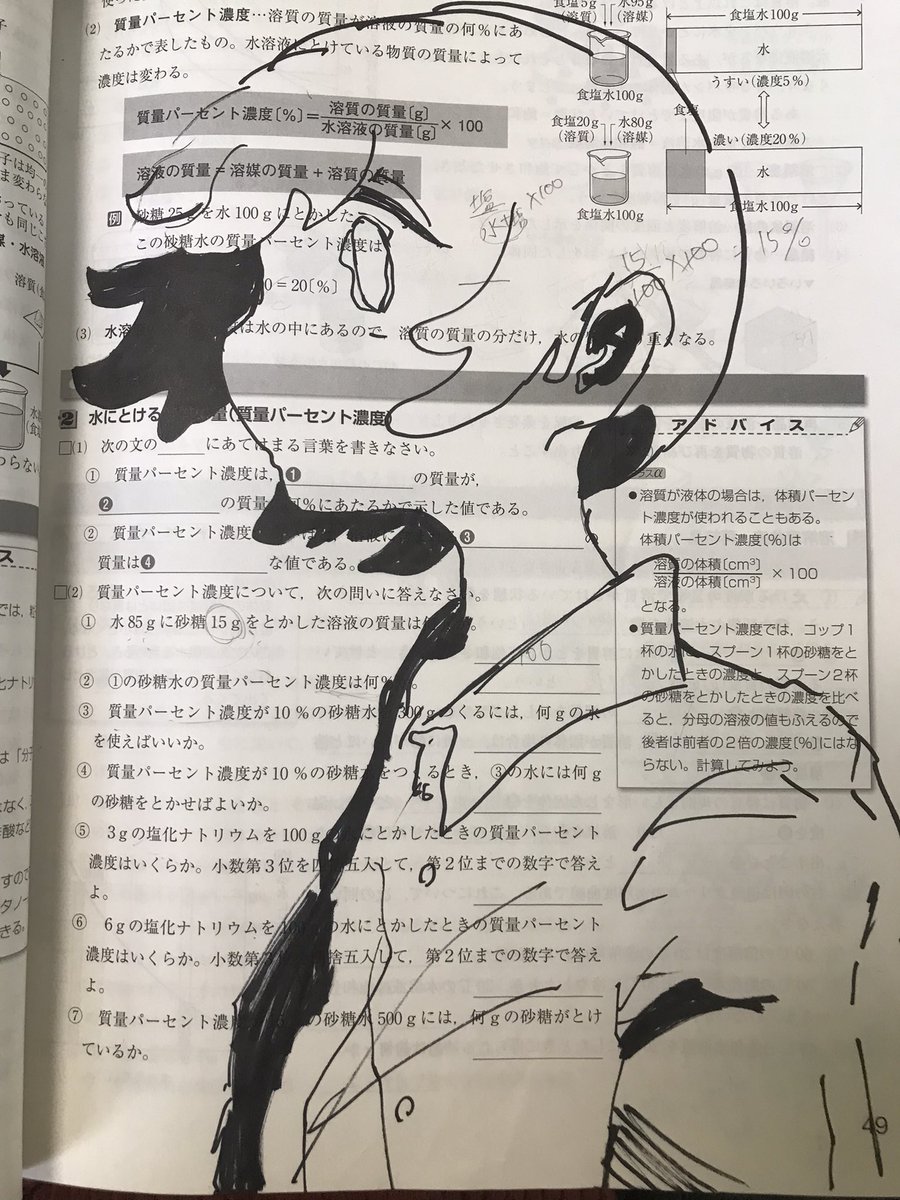 (2) 質量パーセント濃度…溶質の質量が溶液の質量の何％にあ
たるかで表したもの。水溶液にとけている物質の質量によって
濃度は変わる。
質量パーセント濃度〔％〕＝溶質の質量〔g〕/水溶液の質量〔g〕× 100
溶液の質量 = 溶媒の質量 + 溶質の質量
例 砂糖 25g を水 100 g にとかした
この砂糖水の質量パーセント濃度は
0 = 20〔％〕
(3) 水溶
は水の中にあるので 溶質の質量の分だけ，水の
重くなる。
食塩5g 水95g
(溶質) (溶媒)
食塩水100g
食塩水100g
水
うすい(濃度5％)
食塩
食塩20g 水80g
(溶質) (溶媒)
濃い(濃度20％)
水
食塩水100g
食塩水100g
塩
水+塩 ×100
15
100 ×100
15%
2 水にとける
量(質量パーセント濃度)
□(1) 次の文の にあてはまる言葉を書きなさい。
① 質量パーセント濃度は，❶ の質量が，
❷ の質量の何％にあたるかで示した値である。
② 質量パーセント濃度 ❸ の
質量は❹ な値である。
□(2) 質量パーセント濃度について，次の問いに答えなさい。
① 水 85 g に砂糖 15 g をとかした溶液の質量は何
100
② ①の砂糖水の質量パーセント濃度は何％
③ 質量パーセント濃度が 10 ％の砂糖水 300 g つくるには，何 g の水
を使えばいいか。
④ 質量パーセント濃度が 10 ％の砂糖水をつくるとき，③の水には何 g
の砂糖をとかせばよいか。
⑤ 3 g の塩化ナトリウムを 100 g の水にとかしたときの質量パーセント
濃度はいくらか。小数第 3 位を四捨五入して，第 2 位までの数字で答え
よ。
⑥ 6 g の塩化ナトリウムを 100 の水にとかしたときの質量パーセント
濃度はいくらか。小数第 捨五入して，第 2 位までの数字で答え
よ。
⑦ 質量パーセント濃度 の砂糖水 500 g には，何 g の砂糖がとけ
ているか。
アドバイス
プラスα
●溶質が液体の場合は，体積パーセン
ト濃度が使われることもある。
体積パーセント濃度〔％〕は
溶質の体積〔cm³〕/溶液の体積〔cm³〕 × 100
となる。
●質量パーセント濃度では，コップ 1
杯の水に，スプーン 1 杯の砂糖をと
かしたときの濃度と，スプーン 2 杯
の砂糖をとかしたときの濃度を比べ
ると，分母の溶液の値もふえるので
後者は前者の 2 倍の濃度〔％〕にはな
らない。計算してみよう。
49